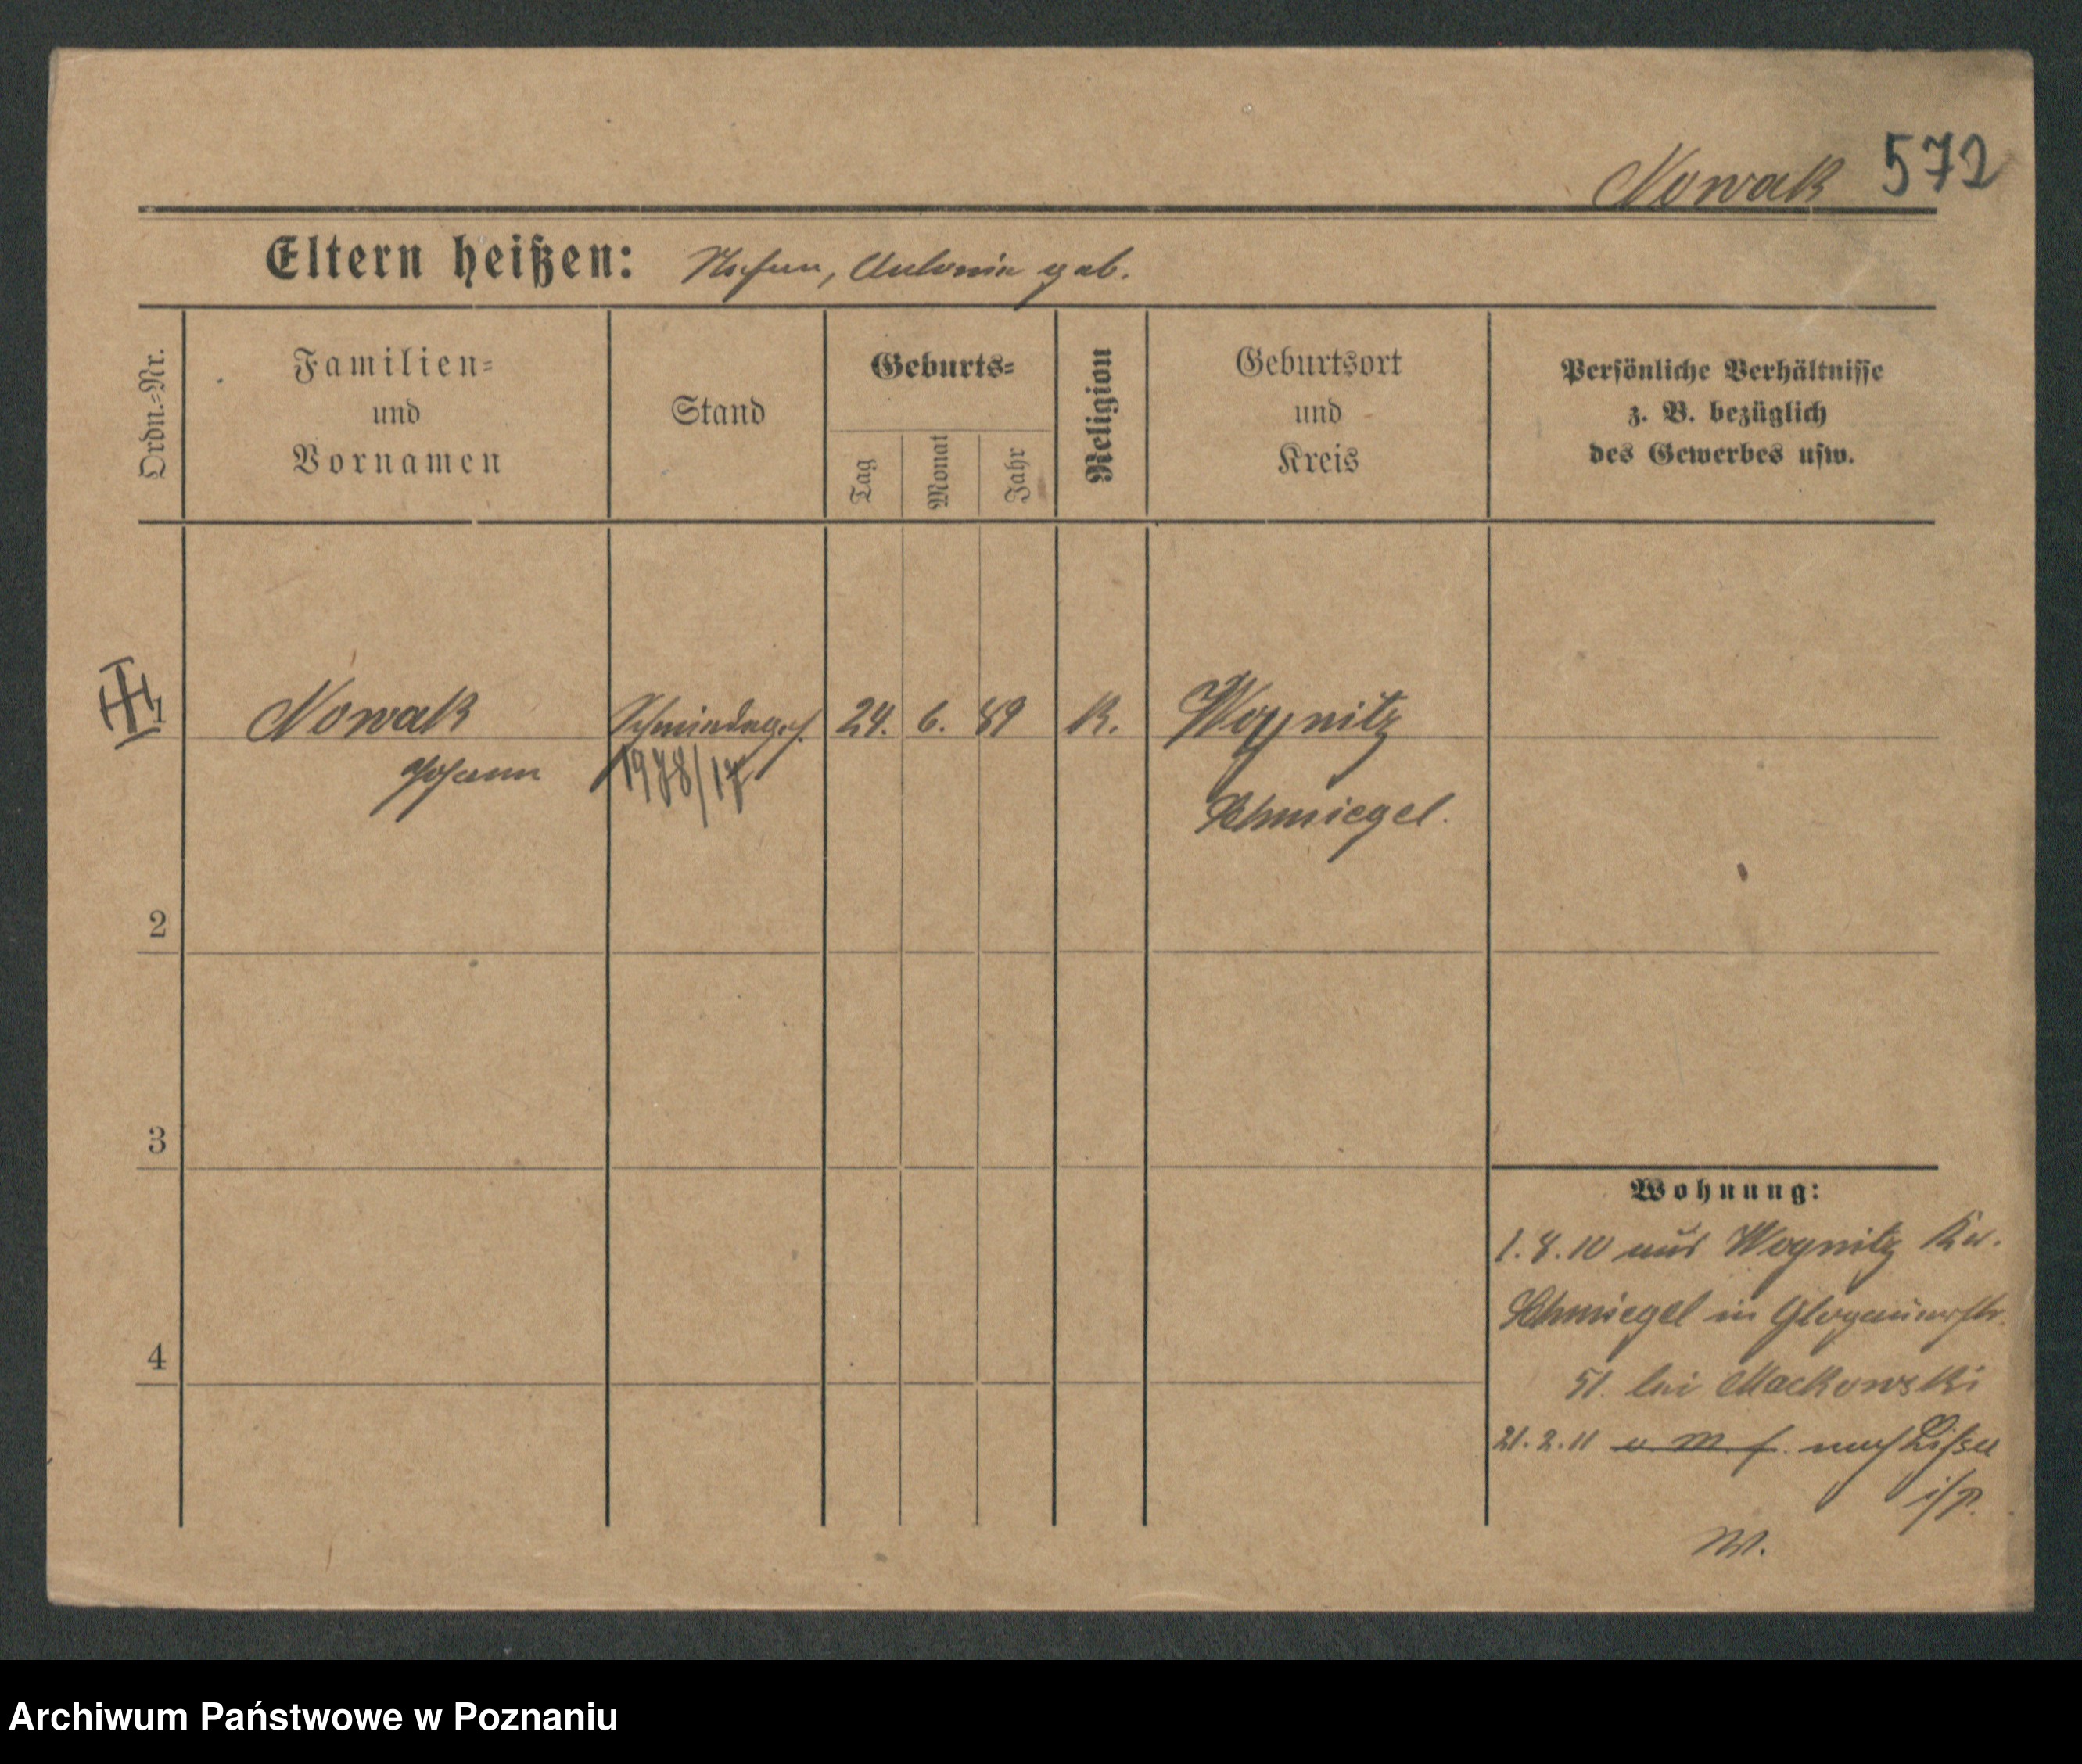 Nowak 572
Eltern heißen: Antonie geb.
Ordn.-Nr.
Familien-
und
Vornamen
Stand
Geburts-
Tag
Monat
Jahr
Religion
Geburtsort
und
Kreis
Persönliche Verhältnisse
z. B. bezüglich
des Gewerbes usw.
1 Nowak Schmiedeges. 24. 6. 89 K. Woynitz
Johann
Schmiegel.
2
3
4
Wohnung:
1.8.10 aus Woynitz Kr.
Schmiegel in Glogauerstr.
51. bei Mackowski
21.2.11 nach Lissa
i/P.
W.
Archiwum Państwowe w Poznaniu